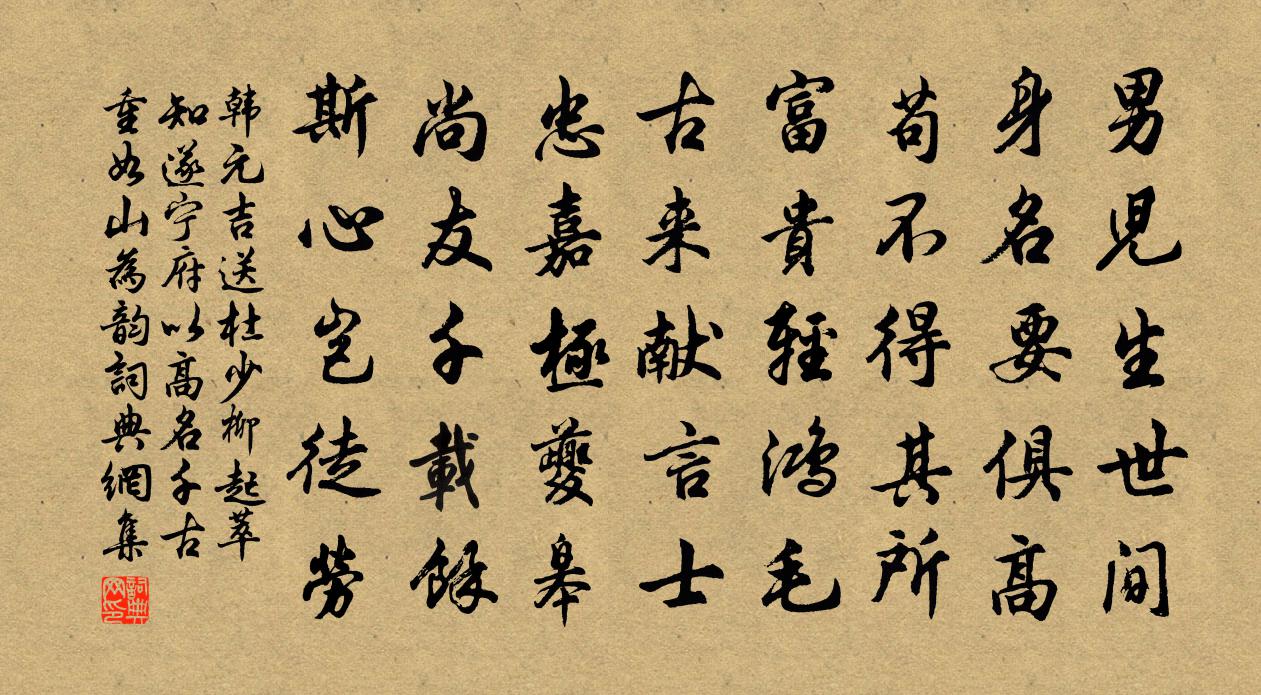 男児生世間
身名要俱高
苟不得其所
富貴輕鴻毛
古来献言士
忠嘉極夔皋
尚友千載餘
斯心豈徒勞
韩元吉送杜少柳起莘
知遂宁府以高名千古
重如山為韵詞典網集
詞典
网印